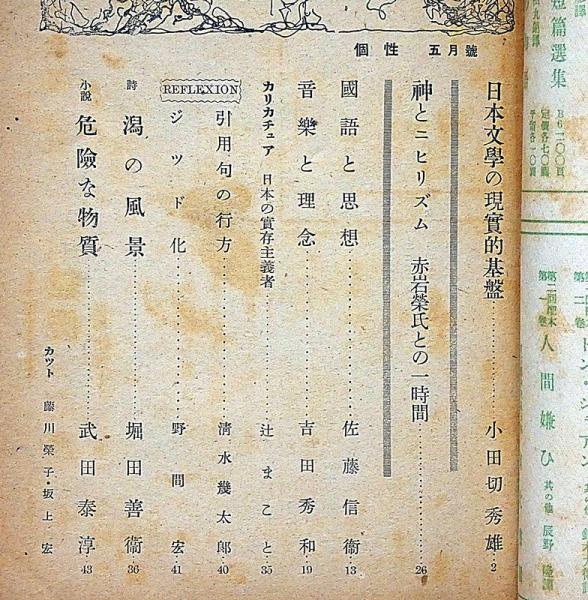 個性 五月號
日本文學の現實的基盤……小田切秀雄…2
神とニヒリズム 赤岩榮氏との一時間……26
國語と思想……佐藤信衞…13
音樂と理念……吉田秀和…19
カリカチュア 日本の實存主義者……辻まこと…35
REFLEXION
引用句の行方……清水幾太郎…40
ジッド化……野間宏…41
詩 潟の風景……堀田善衞…36
小説 危險な物質……武田泰淳…43
カット 藤川榮子・坂上宏
短篇選集
人間嫌ひ 其の他 辰野隆譯